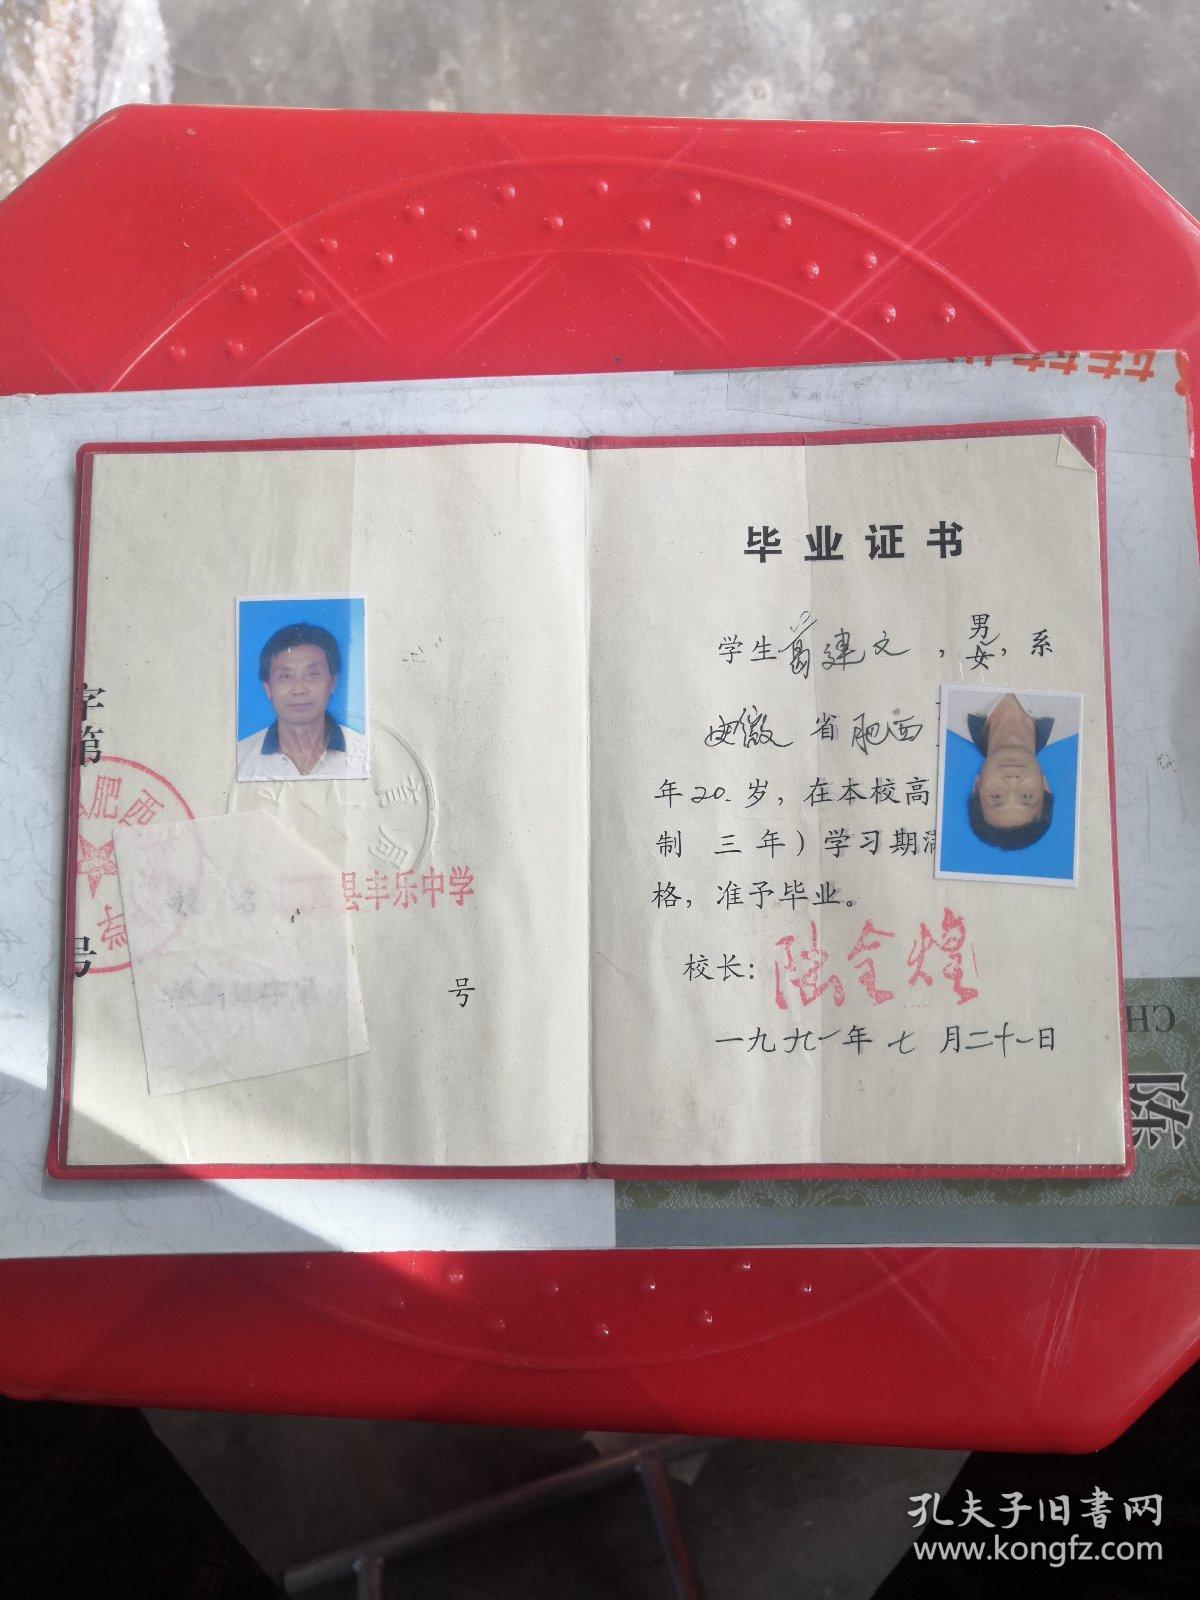 毕业证书
学生葛建文，男女，系
安徽省肥西
年20.岁，在本校高
制 三年）学习期满
格，准予毕业。
校长：陆全煌
一九九一年七月二十一日
字第
号
肥西
县丰乐中学
号
育局
CH
孔夫子旧书网
www.kongfz.com